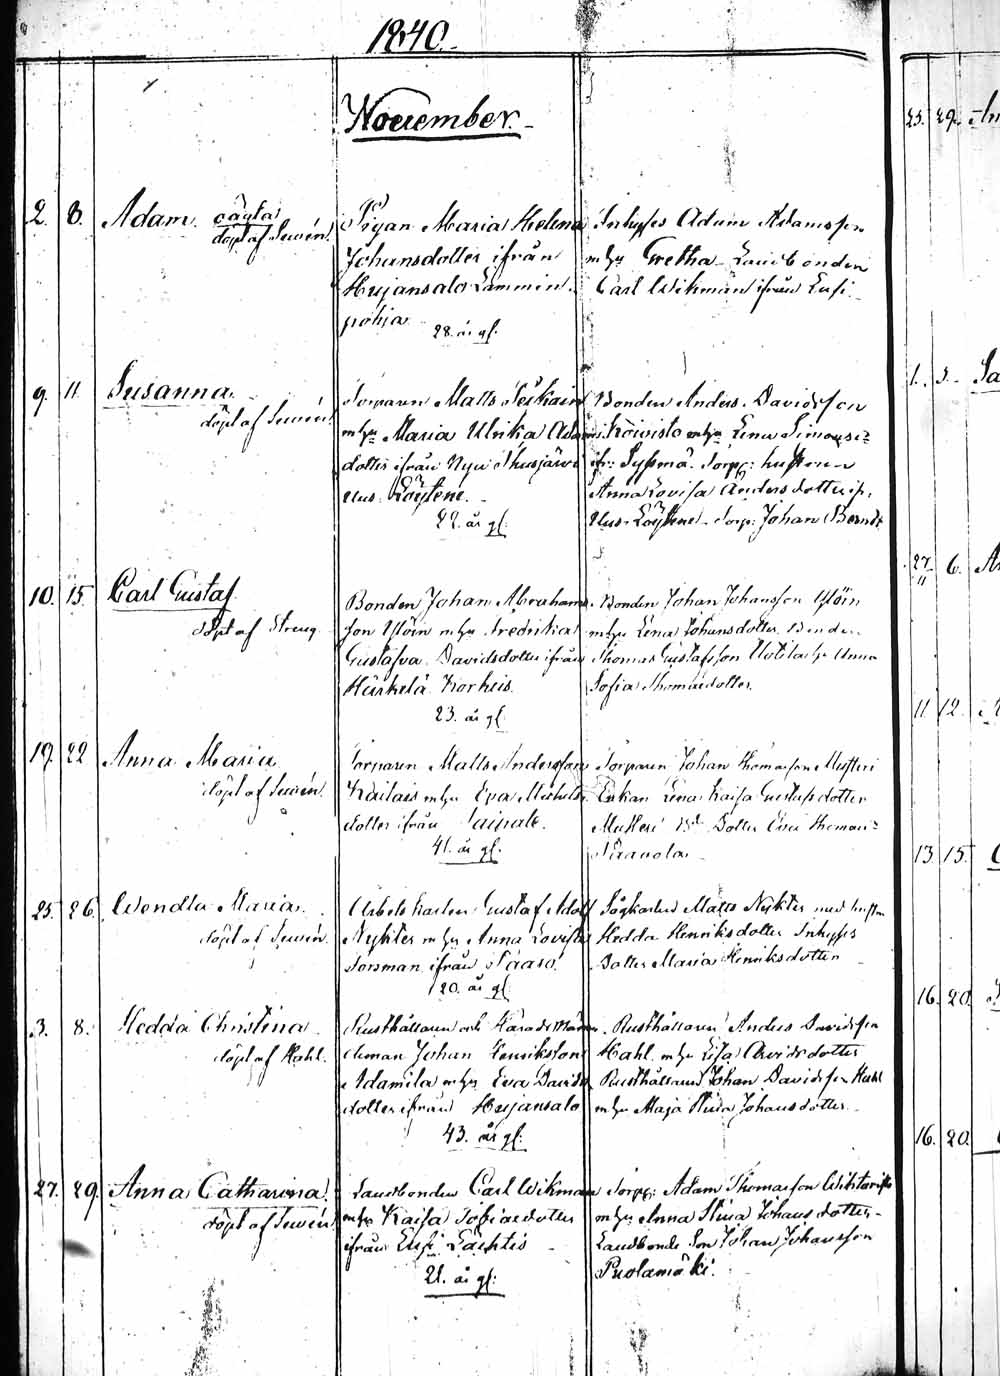 1840.
November.
2. 8. Adam oägta
döpt af Sewén.
Pigan Maria Helena
Johansdotter ifrån
Hujansalo Lammin
pohja
28. år gl.
Inhyses Adam Adamsson
m hu Gretha Landbonden
Carl Wikman ifrån Eufi
9. 11. Susanna
döpt af Sewén
Torparen Matts
m hu Maria Ulrika Adams
dotter ifrån Nyu
Uus Löytene.
22. år gl.
Bonden Anders Davidsson
Koivisto m hu Lena Simons
fr. Syssmä. Torp: hustrun
Anna Lovisa Andersdotter
Uus Löytene Torp: Johan Berndt
10. 15. Carl Gustaf
döpt af Streng
Bonden Johan Abrahams
son Ylöin m hu Fredrika
Gustafva Davidsdotter ifrån
Härkelä Korkeis.
23. år gl.
Bonden Johan Johansson Ylöin
m hu Lena Johansdotter Bonden
Thomas Gustafsson Uotila hu Anna
Sofia Thomasdotter.
19. 22 Anna Maria
döpt af Sewén.
Torparen Matts Andersson
m hu Eva Michels
dotter ifrån
41. år gl.
Torparen Johan Thomasson
Enkan Lena Kaisa Gustafsdotter
Dotter Eva Thomas
25. 26. Wendla Maria
döpt af Sewén.
Arbets Karlen Gustaf Adolf
Nykter m hu Anna Lovisa
Forsman ifrån Pääsö
20. år gl.
Sågkarlen Matts Nykter med hustru
Hedda Henriksdotter Inhyses
Dotter Maria Henriksdotter
3. 8. Hedda Christina
döpt af Hahl.
Rusthållaren och Härads
deman Johan Henriksson
Adamila m hu Eva Davids
dotter ifrån Hujansalo
43. år gl.
Rusthållaren Anders Davidsson
Hahl m hu Lisa Arvidsdotter
Rusthållaren Johan Davidsson Hahl
m hu Maja Stina Johansdotter
27. 29. Anna Catharina.
döpt af Sewén
Landbonden Carl Wikman
m hu Kaisa Tobiaedotter
ifrån Eufi Lähtis
21. år gl:
Torp: Adam Thomasson
m hu Anna Stina Johansdotter
Landbonde Son Johan Johansson
Puolamäki.
25. 29. An
1. 3. Sa
27. 6.
11 12.
13 15.
16. 20.
16. 20.